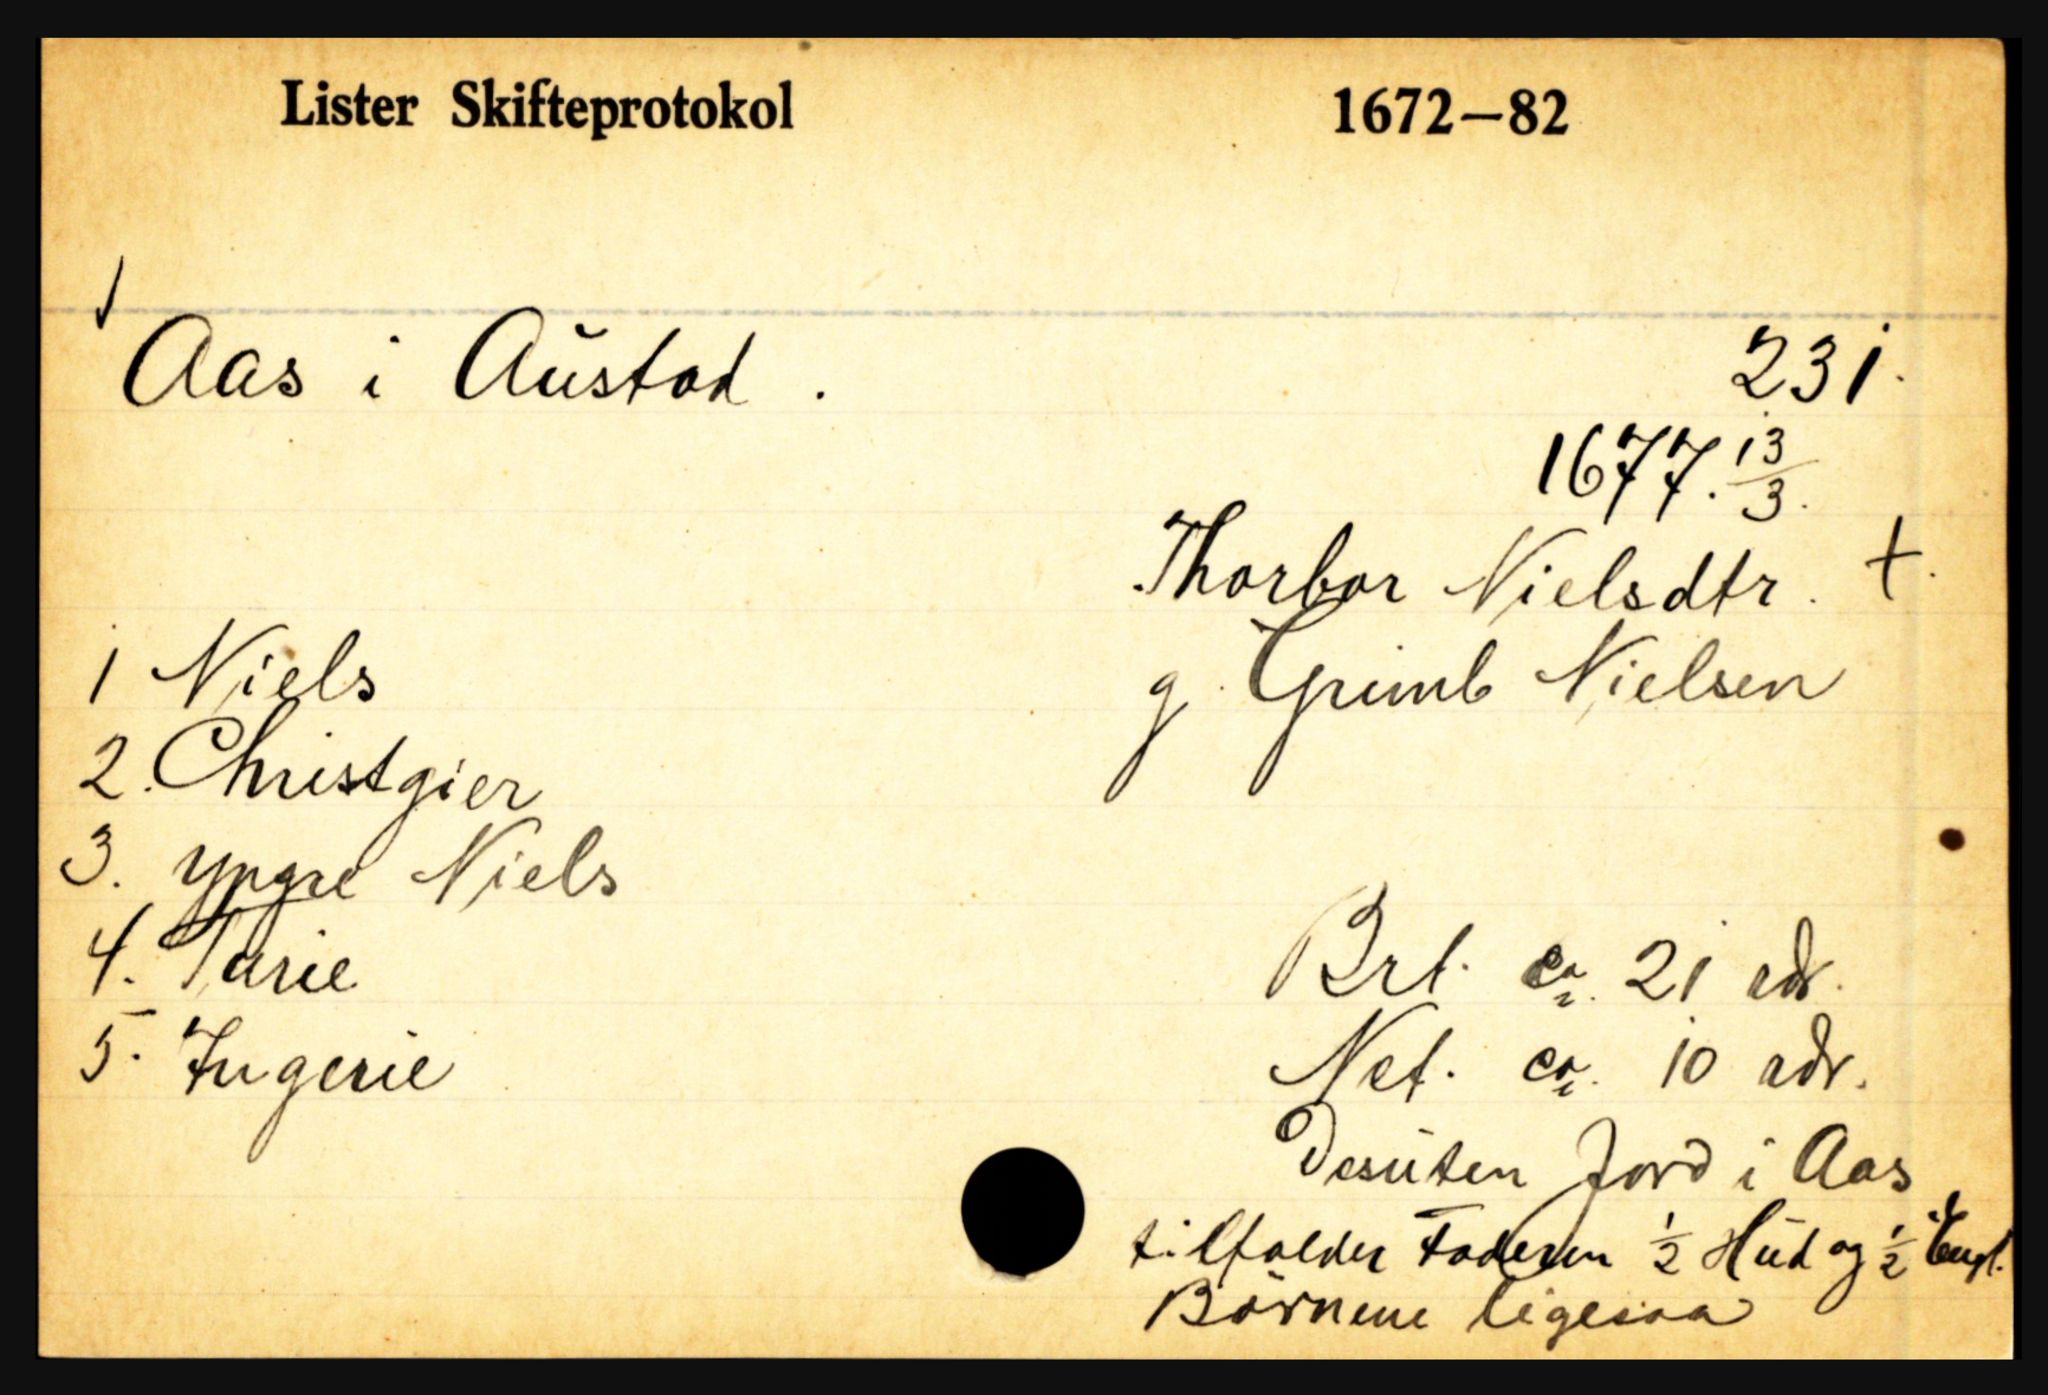 Lister Skifteprotokol 1672–82
Aas i Austad . 231.
1677. 13/3.
Thorbor Nielsdtr. †.
g. Grimb Nielsen
1 Niels
2. Christgier
3. yngre Niels
4. Tarie
5. Ingerie
Brt. ca. 21 rdr.
Net. ca. 10 rdr.
Desuten Jord i Aas
tilfalder Faderen 1/2 Hud og 1/2
Börnene ligesaa